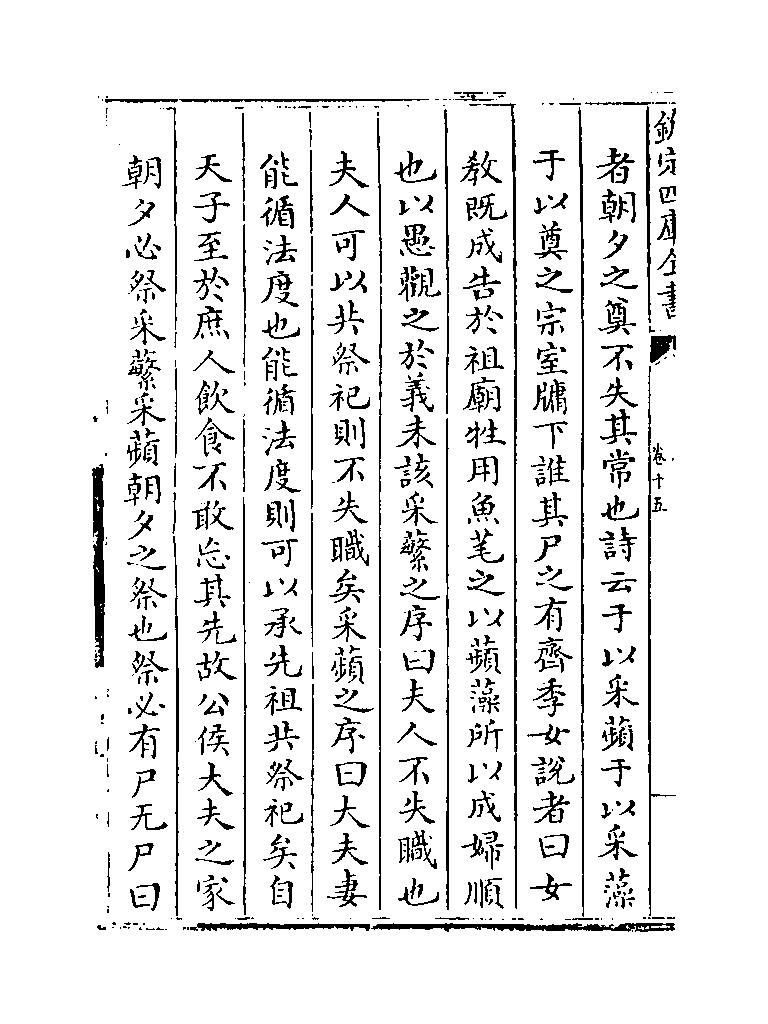 欽定四庫全書
卷十五
者朝夕之奠不失其常也詩云于以采蘋于以采藻
于以奠之宗室牖下誰其尸之有齊季女說者曰女
教既成告於祖廟牲用魚芼之以蘋藻所以成婦順
也以愚觀之於義未該采蘩之序曰夫人不失職也
夫人可以共祭祀則不失職矣采蘋之序曰大夫妻
能循法度也能循法度則可以承先祖共祭祀矣自
天子至於庶人飲食不敢忘其先故公侯大夫之家
朝夕必祭采蘩采蘋朝夕之祭也祭必有尸无尸曰